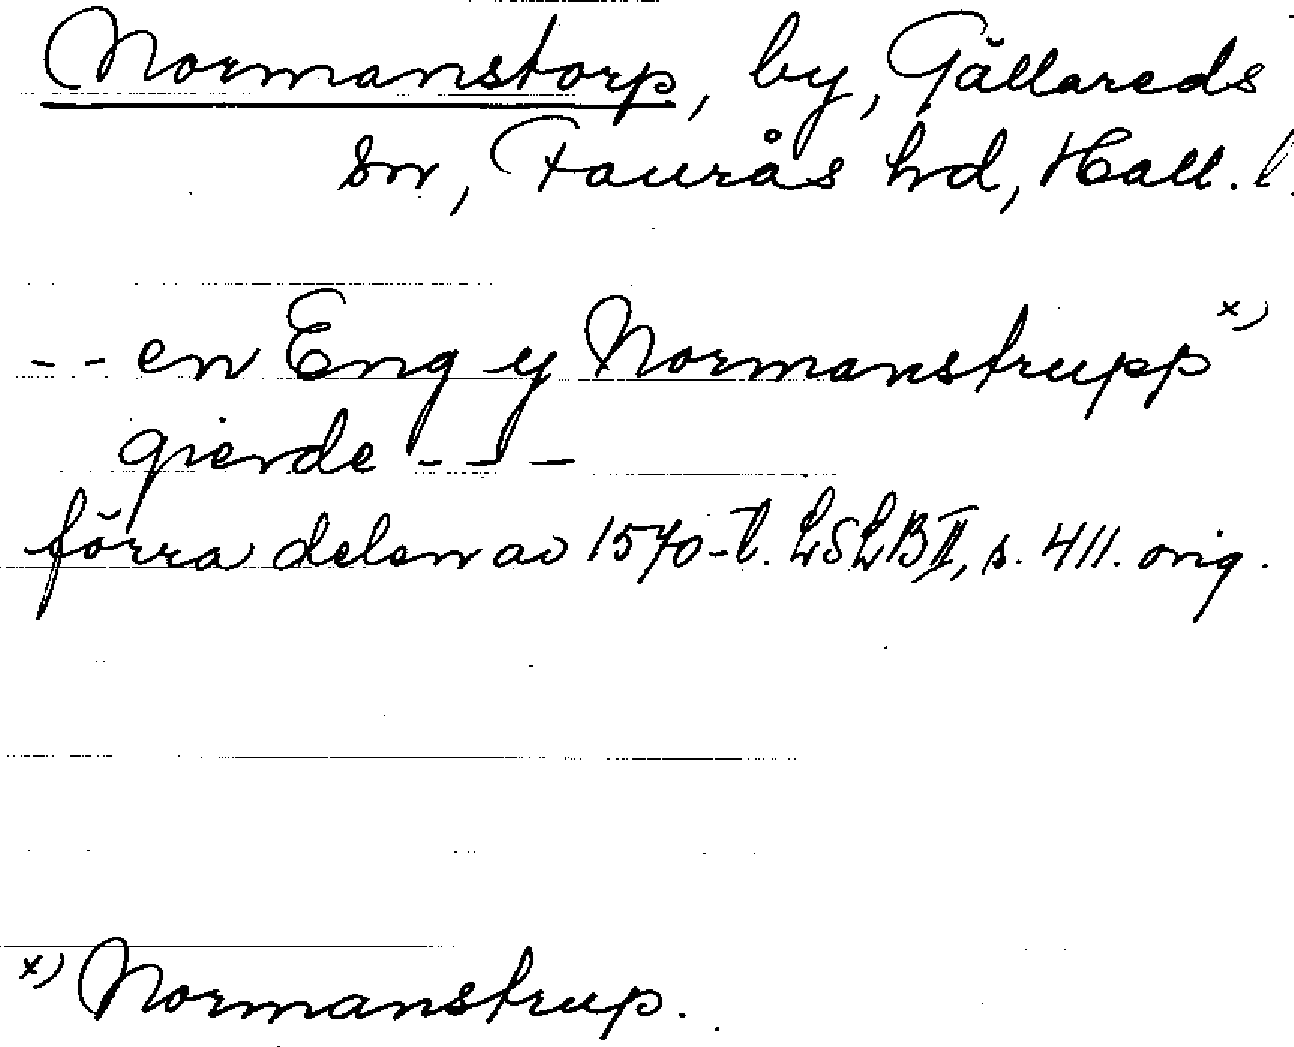 Normanstorp, by, Gällareds
sn, Faurås hrd, Hall. l.
-- en Eng y Normanstrupp x)
gierde ---
förra delen av 1570-t. LSLB II, s. 411. orig.
x) Normanstrup.